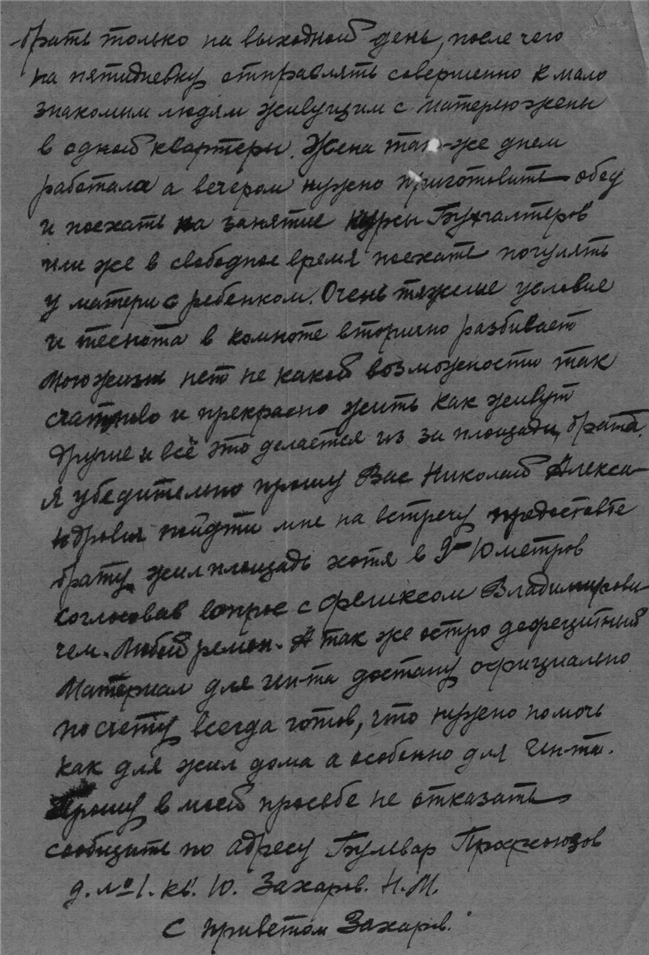 брать только на выходной день, после чего
на пятидневку отправлять совершенно к мало
знакомым людям живущим с матерью жены
в одной квартеры. Жена так-же днем
работала а вечером нужно приготовить обед
и поехать на занятие курсы Бухгалтеров
или же в свободное время поехать погулять
у матери с ребенком. Очень тяжелые условие
и теснота в комноте вторично разбивает
мою жизнь нет не какой возможности так
счатливо и прекрасно жить как живут
другие и всё это делается из за площади, брата.
Я убедительно прошу Вас Николай Алекса-
ндровия пойдти мне на встречу предоставте
брату жил площадь хотя в 9-10 метров
соглосовав вопрос с феликсом Владимирови-
чем. Любой ремон. А так же остро дефецитный
Материал для ин-та достану официально
по счету всегда готов, что нужено помочь
как для жил дома а особенно для ин-та.
Прошу в моей прозьбе не отказать
сообщите по адресу Бульвар Профсоюзов
д. № 1. кв. 10. Захаров. Н.М.
С приветом Захаров.